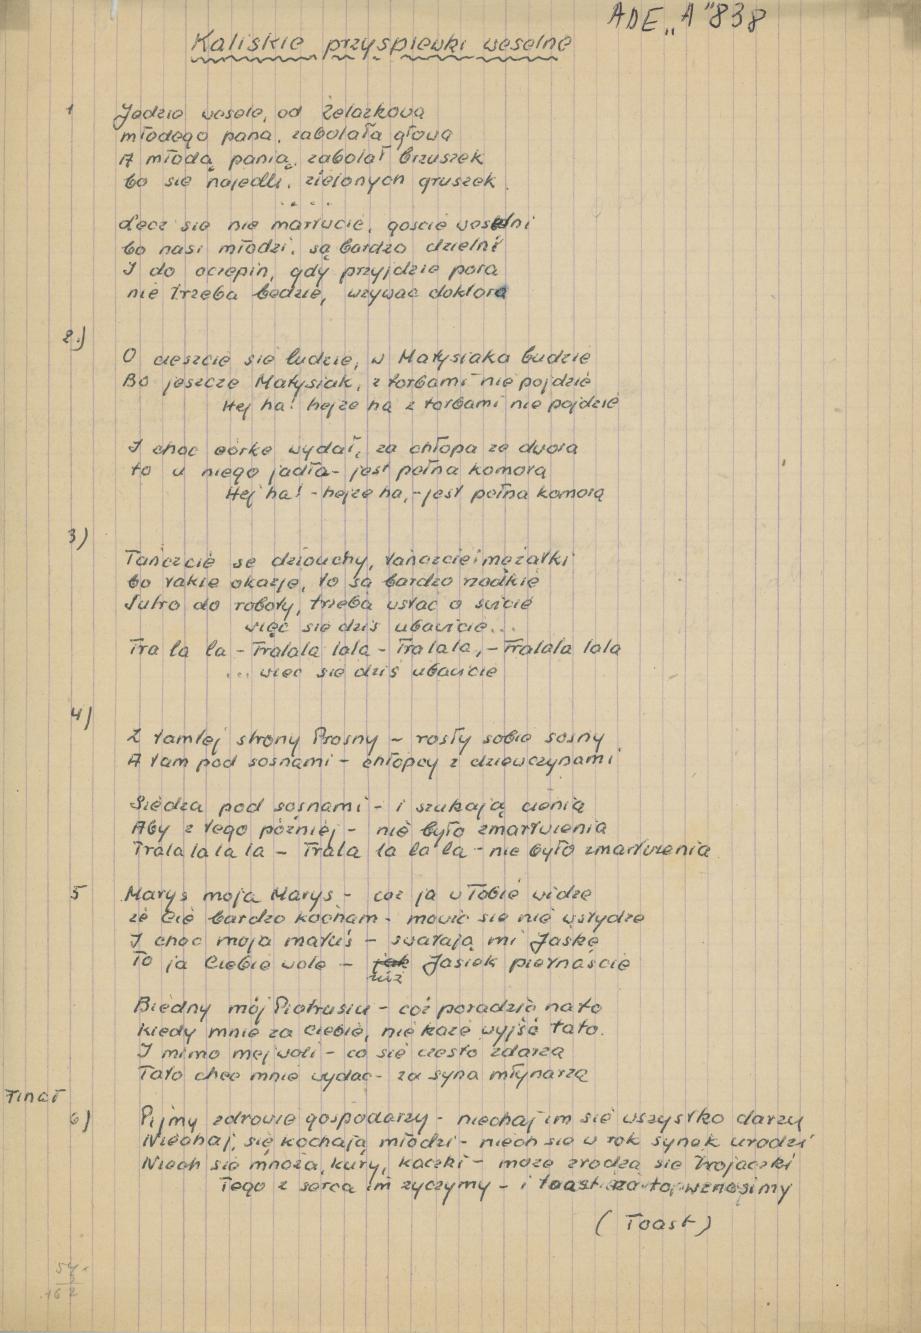 ADE „A" 838
Kaliskie przyspiewki weselne
1
Jedzie wesele, od Żelazkowa
młodego pana, zabolała głowa
A młodą panią, zabolał brzuszek
bo sie najedli, zielonych gruszek.
. . . .
Lecz sie nie martwcie, goście weselni
bo nasi młodzi, są bardzo dzielni
I do oczepin, gdy przyjdzie pora
nie trzeba bedzie, wzywać doktora
2.)
O cieszcie się ludzie, w Matysiaka budzie
Bo jeszcze Matysiak, z torbami nie pojdzie
Hej ha! hejze ha z torbami nie pojdzie
I choc córke wydał, za chłopa ze dwora
to u niego jadła - jest pełna komora
Hej ha! - hejze ha, - jest pełna komora
3)
Tańczcie se dziouchy, tańczcie i mężatki
bo takie okazje, to są bardzo rzadkie
Jutro do roboty, trzeba wstać o świcie
więć się dziś ubawcie...
Tra la la - Tralala lala - Tra lala, - Tralala lala
... wiec sie dziś ubawcie
4)
Z tamtej strony Prosny - rosły sobie sosny
A tam pod sosnami - chłopcy z dziewczynami
Siedza pod sosnami - i szukają cienia
Aby z tego później - nie było zmartwienia
Tralalalala - Trala la la la - nie było zmartwienia
5
Maryś moja Maryś - coż ja w Tobie widze
że Cie bardzo kocham - mowic sie nie wstydze
I choc moja matuś - swatają mi Jaśke
To ja Ciebie wole - jak Jasiek piernaście
niż
Biedny mój Piotrusiu - coż poradzić na to
kiedy mnie za Ciebie, nie kaze wyjść tato.
I mimo mej woli - co się czesto zdarza
Tato chce mnie wydać - za syna młynarza
Finał
6)
Pijmy zdrowie gospodarzy - niechaj im sie wszystko darzy
Niechaj, się kochają młodzi - niech sie w rok synek urodzi
Niech sie mnoża, kury, kaczki - może zrodza sie trojaczki
Tego z serca im zyczymy - i toast za to, wznosimy
(Toast)
54.
3
162